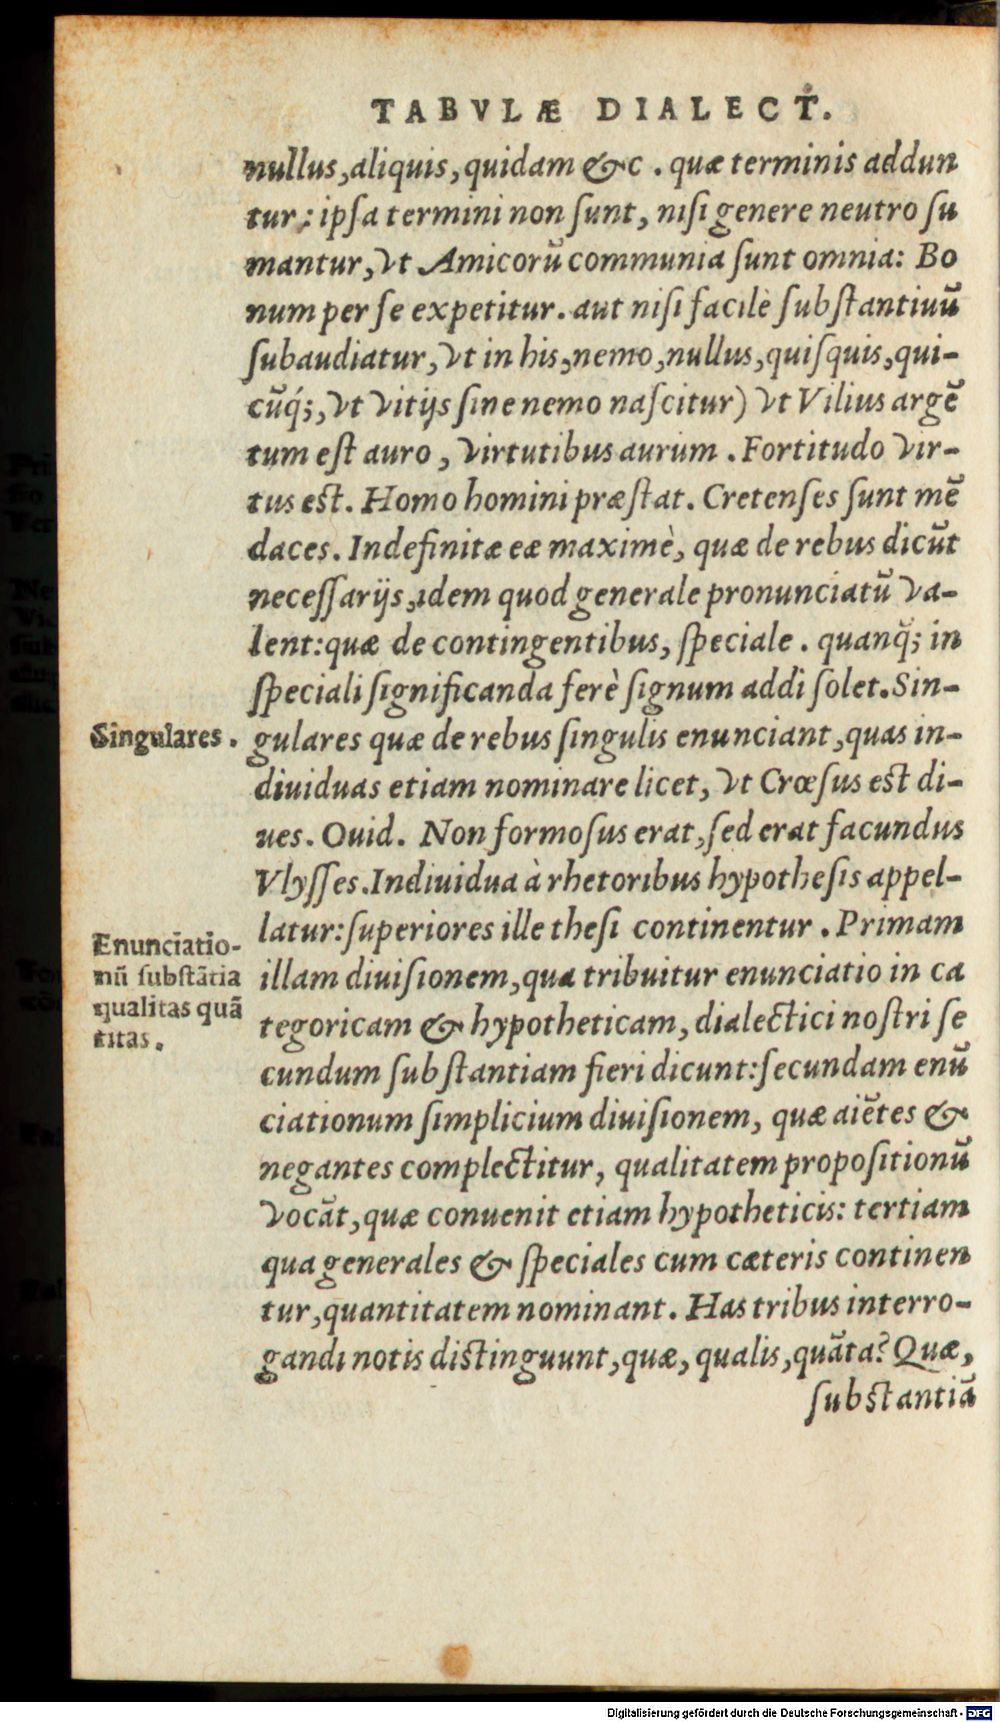 TABVLÆ DIALECT.
nullus, aliquis, quidam &c. quæ terminis addun
tur: ipſa termini non ſunt, niſi genere neutro ſu
mantur, vt Amicorũ communia ſunt omnia: Bo
num per ſe expetitur. aut niſi facilè ſubſtantiuũ
ſubaudiatur, vt in his, nemo, nullus, quiſquis, qui-
cũq́;, vt vitijs ſine nemo naſcitur) vt Vilius argẽ
tum eſt auro, virtutibus aurum. Fortitudo vir-
tus est. Homo homini præſtat. Cretenſes ſunt mẽ
daces. Indefinitæ eæ maximè, quæ de rebus dicũt
neceſſarijs, idem quod generale pronunciatũ va-
lent: quæ de contingentibus, ſpeciale. quanq̃; in
ſpeciali ſignificanda ferè ſignum addi ſolet. Sin-
Singulares. gulares quæ de rebus ſingulis enunciant, quas in-
diuiduas etiam nominare licet, vt Crœſus est di-
ues. Ouid. Non formoſus erat, ſed erat facundus
Vlyſſes. Indiuidua à rhetoribus hypotheſis appel-
latur: ſuperiores ille theſi continentur. Primam
Enunciatio-
nũ ſubſtãtia
qualitas quã
titas.
illam diuiſionem, qua tribuitur enunciatio in ca
tegoricam & hypotheticam, dialectici noſtri ſe
cundum ſubſtantiam fieri dicunt: ſecundam enũ
ciationum ſimplicium diuiſionem, quæ aiẽtes &
negantes complectitur, qualitatem propoſitionũ
vocãt, quæ conuenit etiam hypotheticis: tertiam
qua generales & ſpeciales cum cæteris continen
tur, quantitatem nominant. Has tribus interro-
gandi notis distinguunt, quæ, qualis, quãta? Quæ,
ſubstantiã
Digitalisierung gefördert durch die Deutsche Forschungsgemeinschaft - DFG